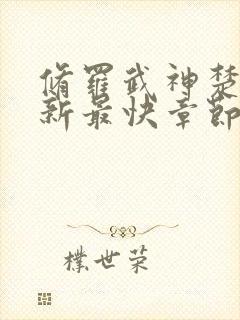 脩羅武神楚
新最快章節
樸世荣